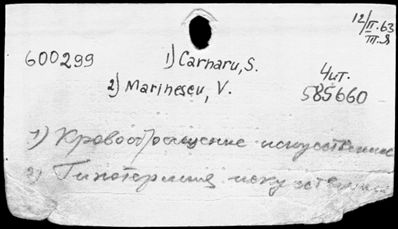 12/II.63
III.Я
600299
1) Carnaru, S.
2) Marinescu, V.
Чит.
585660
1) Кровообращение искусственное
2) Гипотермия искусственная